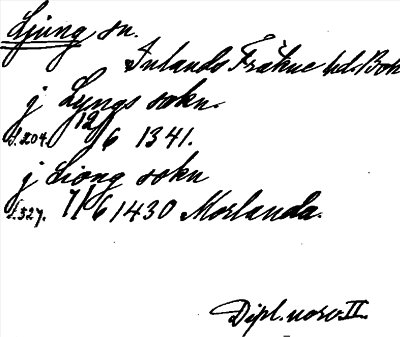 Ljung sn.
Inlands Fräkne hd. Boh
j Lyngs sokn.
s. 204. 12/6 1341.
j Liong sokn
s. 327. 7/6 1430 Morlanda.
Dipl. norv. II.